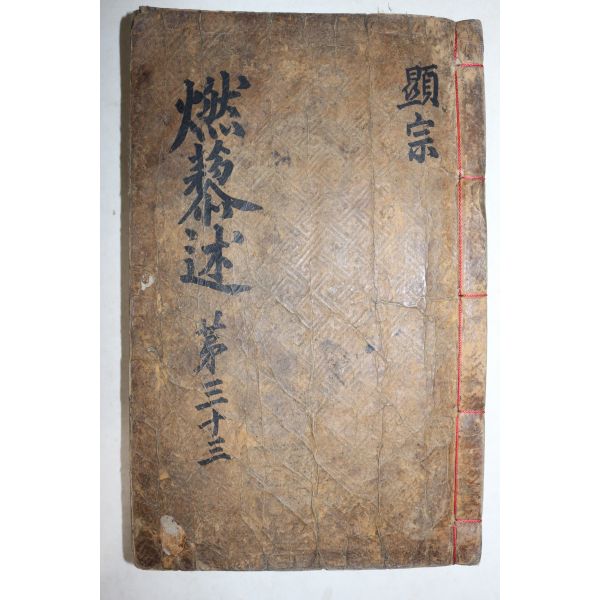 顯宗
燃藜述
第三十三